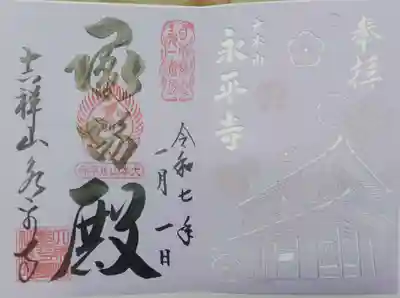 奉拝
大本山
永平寺
令和七年
一月一日
承陽殿
吉祥山永平寺